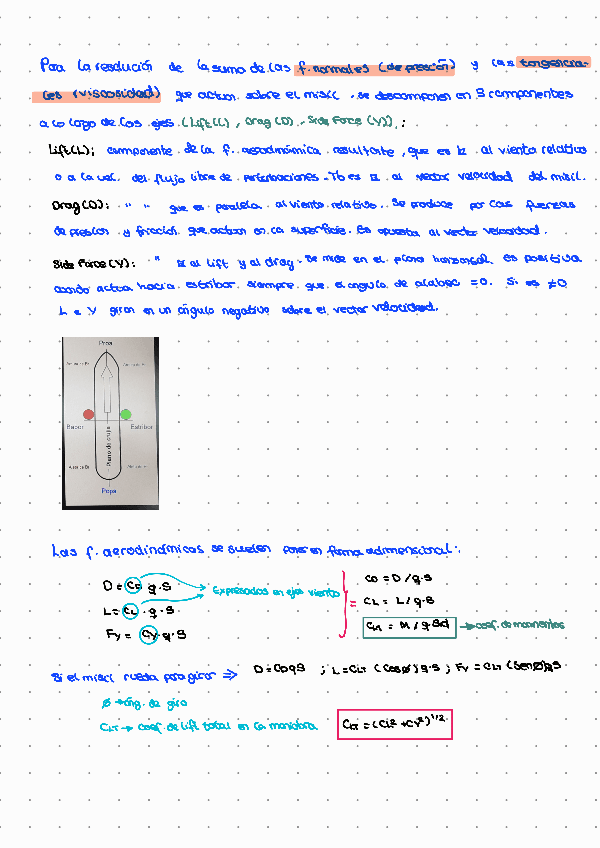 Para la resolución de la suma de las f. normales (de presión) y las tangencia-
les (viscosidad) que actuan sobre el misil, se descomponen en 3 componentes
a lo largo de los ejes (Lift(L), Drag(D), Side Force (Y)):
Lift(L): componente de la f. aerodinámica resultante, que es ⊥ al viento relativo
o a la vel. del flujo libre de perturbaciones. Tb es ⊥ al vector velocidad del misil.
Drag(D): " " que es paralela al viento relativo. Se produce por las fuerzas
de presion y fricción que actuan en la superficie. Es opuesta al vector velocidad.
Side Force (Y): " ⊥ al lift y al drag. Se mide en el plano horizontal es positiva
cuando actua hacia estribor, siempre que el angulo de alabeo = 0. Si es ≠0
L e Y giran en un ángulo negativo sobre el vector velocidad.
Proa
Babor Estribor
Plano de crujía
Popa
Las f. aerodinámicas se suelen poner en forma adimensional:
D = CD q·S → Expresados en ejes viento CD = D/q·S
L = CL · q·S = CL = L/q·S
Fy = Cy q·S CM = M/q·Sd → coef. de momentos
Si el misil rueda para girar ⇒ D = CD q S ; L = CLT (cosø) q·S ; Fy = CLT (senø) q S
ø → áng. de giro
CLT → coef. de lift total en la maniobra CLT = (CL² + CY²)^1/2